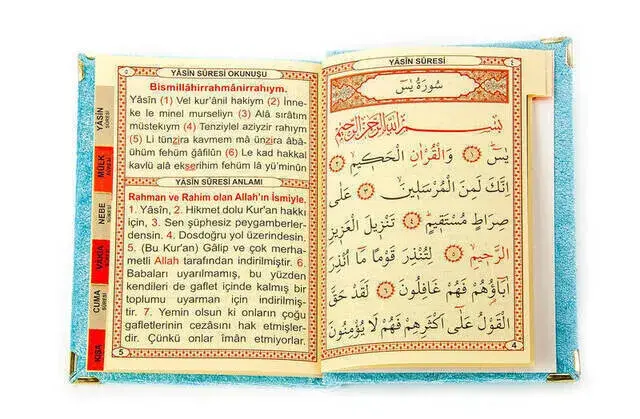 YÂSÎN SÛRESİ
٤
سُورَةُ يٰسٓ
بِسْمِ اللّٰهِ الرَّحْمٰنِ الرَّحٖيمِ
يٰسٓ ﴿١﴾ وَالْقُرْاٰنِ الْحَكٖيمِ ﴿٢﴾
اِنَّكَ لَمِنَ الْمُرْسَلٖينَ ﴿٣﴾ عَلٰى
صِرَاطٍ مُسْتَقٖيمٍ ﴿٤﴾ تَنْزٖيلَ الْعَزٖيزِ
الرَّحٖيمِ ﴿٥﴾ لِتُنْذِرَ قَوْمًا مَٓا اُنْذِرَ
اٰبَٓاؤُهُمْ فَهُمْ غَافِلُونَ ﴿٦﴾ لَقَدْ حَقَّ
الْقَوْلُ عَلٰٓى اَكْثَرِهِمْ فَهُمْ لَا يُؤْمِنُونَ
4
٥
YÂSÎN SÛRESİ OKUNUŞU
Bismillâhirrahmânirrahıym.
Yâsîn (1) Vel kur'ânil hakiym (2) İnne-
ke le minel murseliyn (3) Alâ sırâtim
müstekıym (4) Tenziylel aziyzir rahıym
(5) Li tünzira kavmem mâ ünzira âbâ-
ühüm fehüm ğafilûn (6) Le kad hakkal
kavlü alâ ekserihim fehüm lâ yü'minûn
YÂSÎN SÛRESİ ANLAMI
Rahman ve Rahim olan Allah'ın İsmiyle.
1. Yâsîn, 2. Hikmet dolu Kur'an hakkı
için, 3. Sen şüphesiz peygamberler-
densin. 4. Dosdoğru yol üzerindesin.
5. (Bu Kur'an) Gâlip ve çok merha-
metli Allah tarafından indirilmiştir. 6.
Babaları uyarılmamış, bu yüzden
kendileri de gaflet içinde kalmış bir
toplumu uyarman için indirilmiş-
tir. 7. Yemin olsun ki onların çoğu
gafletlerinin cezâsını hak etmişler-
dir. Çünkü onlar îman etmiyorlar.
5
YÂSÎN
SÛRESİ
MÜLK
SÛRESİ
NEBE
SÛRESİ
VÂKIA
SÛRESİ
CUMA
SÛRESİ
KISA